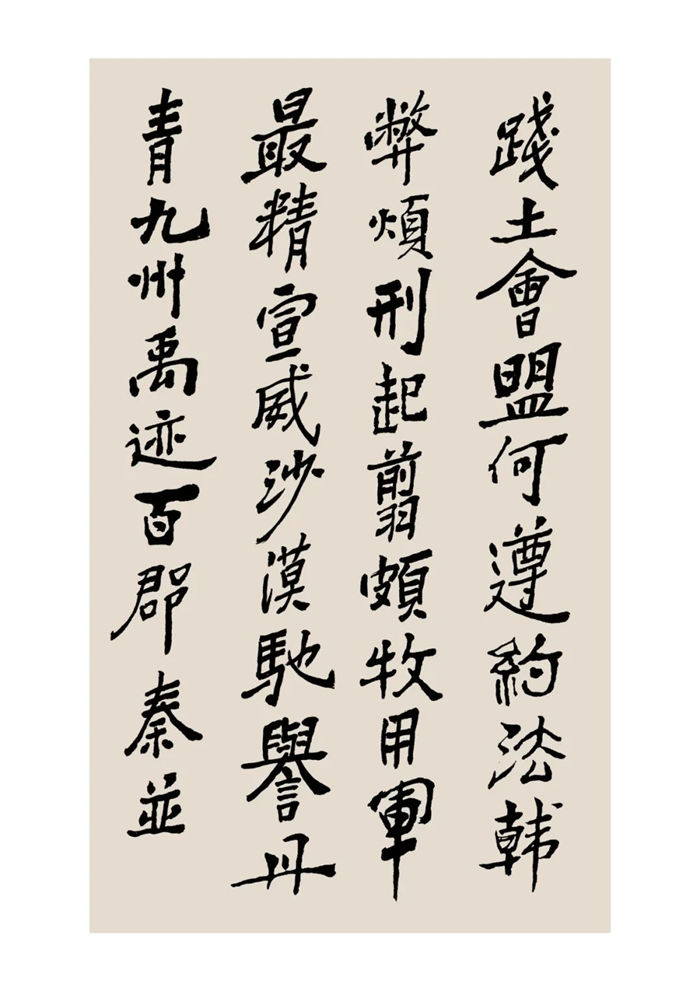 踐土會盟何遵約法韓
弊煩刑起翦頗牧用軍
最精宣威沙漠馳譽丹
青九州禹迹百郡秦並